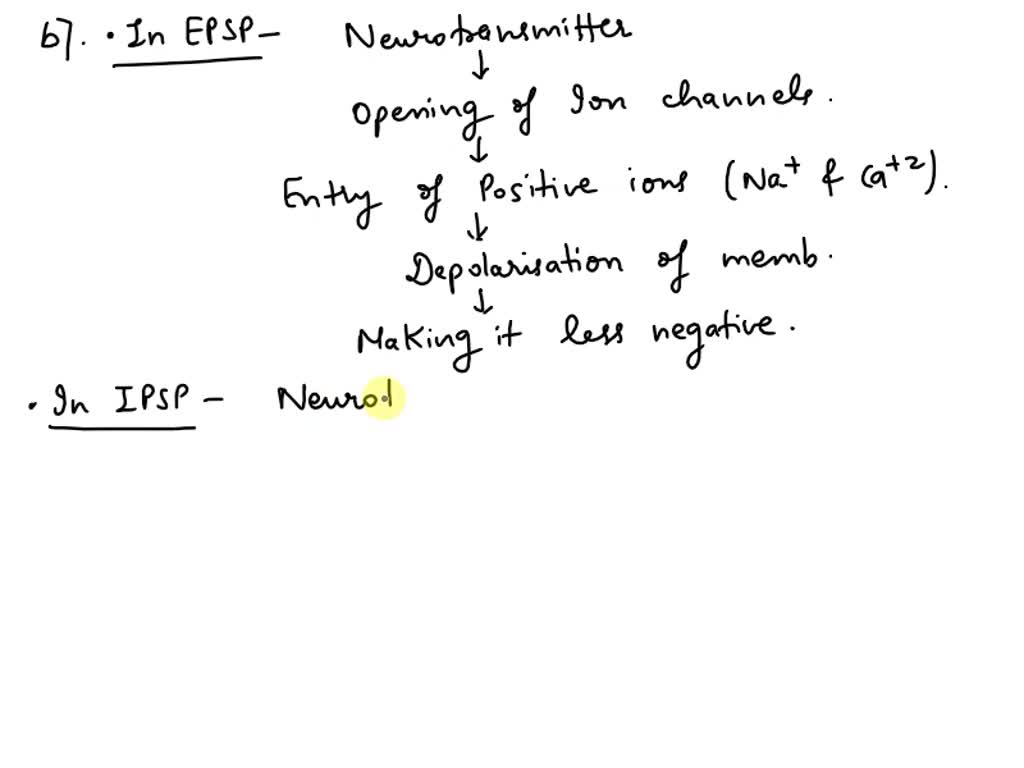 b). • In EPSP - Neurotransmitter
↓
Opening of Ion channels.
↓
Entry of Positive ions (Na+ & Ca+2).
↓
Depolarisation of memb.
↓
Making it less negative.
• In IPSP - Neurot